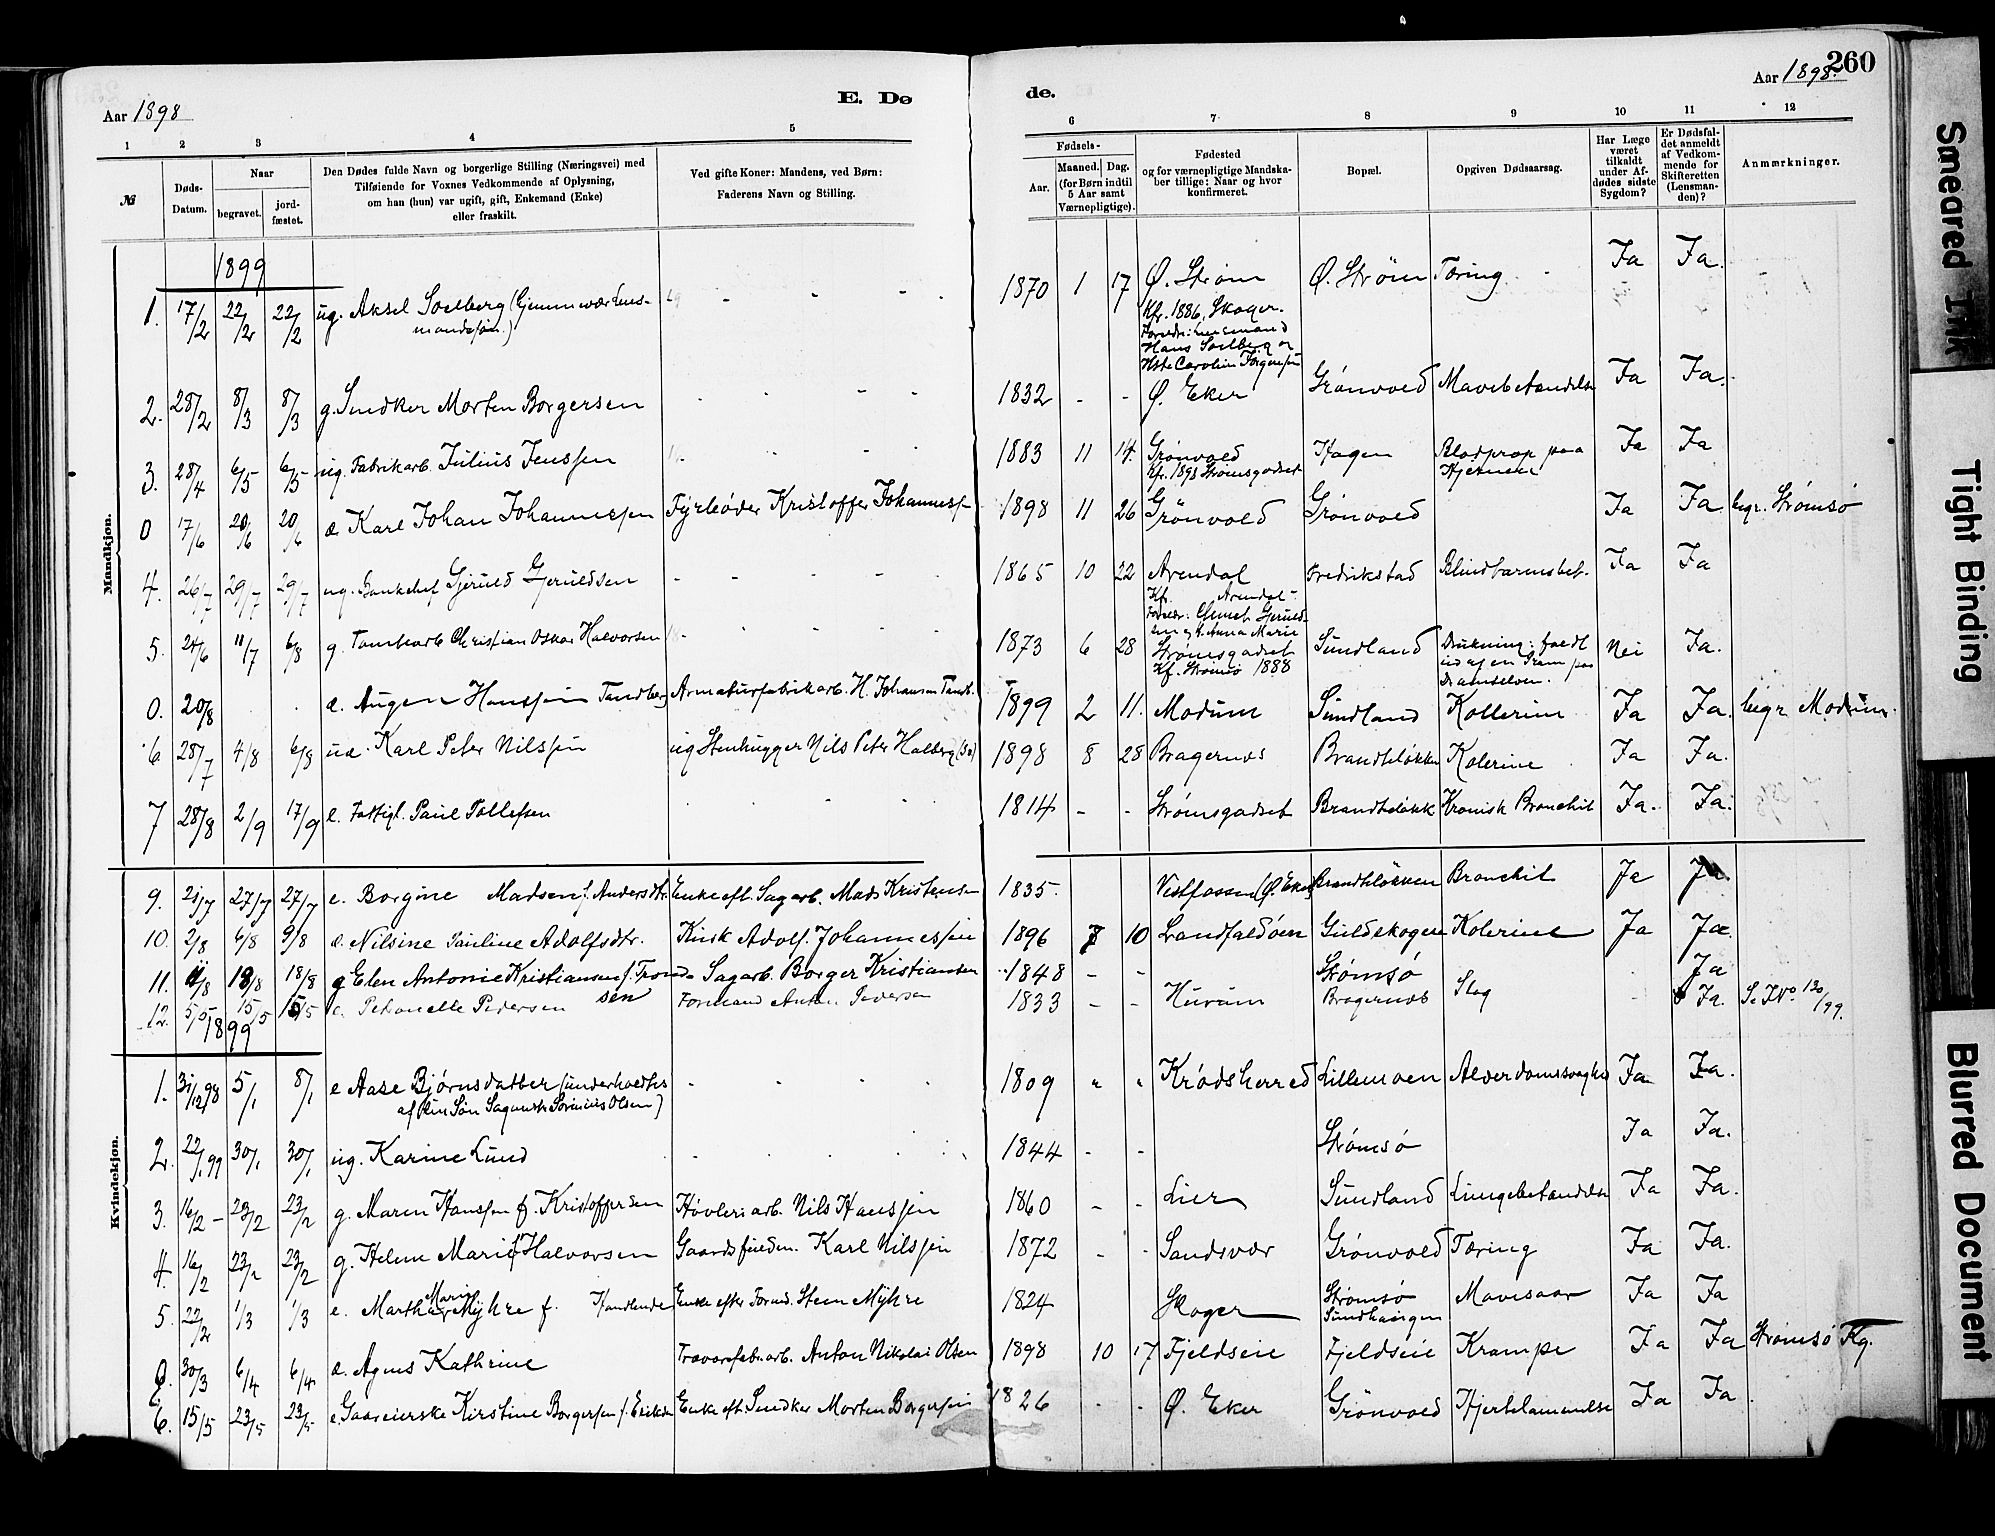 260
Aar 1898
E. Dø
de.
Aar 1898.
1 2 3 4 5 6 7 8 9 10 11 12
№
Døds-
Datum.
Naar
begravet.
jord-
fæstet.
Den Dødes fulde Navn og borgerlige Stilling (Næringsvei) med
Tilføiende for Voxnes Vedkommende af Oplysning,
om han (hun) var ugift, gift, Enkemand (Enke)
eller fraskilt.
Ved gifte Koner: Mandens, ved Børn:
Faderens Navn og Stilling.
Fødsels-
Aar.
Maaned. Dag.
(for Børn indtil
5 Aar samt
Værnepligtige).
Fødested
og for værnepligtige Mandska-
ber tillige: Naar og hvor
konfirmeret.
Bopæl.
Opgiven Dødsaarsag.
Har Læge
været
tilkaldt
under Af-
dødes sidste
Sygdom?
Er Dødsfal-
det anmeldt
af Vedkom-
mende for
Skifteretten
(Lensman-
den)?
Anmærkninger.
Mandkjøn.
1899
1. 17/2 22/2 22/2 ug. Aksel Solberg 1870 1 17 Ø. Strøm Ø. Strøm Tæring Ja Ja.
Kfr. 1886, Skoger.
Hans Solberg og
2. 28/2 8/3 8/3 g. Snedker Morten Borgersen 1832 - - Ø. Eker Grønvold Mavebetændelse Ja Ja.
3. 28/4 6/5 6/5 ug. Fabrikarb. Julius Jenssen 1883 11 14 Grønvold Hagen Blodprop paa Ja Ja
Kfr. 1898 Strømsgodset Hjernen
0 17/6 20/6 20/6 æ. Karl Johan Johannessen Fyrbøder Kristoffer Johanness. 1898 11 26 Grönvold Grönvold Ja Ja. begr. Strømsö
4. 26/7 29/7 29/7 ug. Bankchef Gjeruld Gjeruldsen 1865 10 22 Arendal Fredrikstad Blindtarmsbet. Ja Ja
Kf. Arendal
5. 24/6 11/7 6/8 g. Tomtearb. Christian Oskar Halvorsen 1873 6 28 Strömsgodset Sundland Drukning: faldt Nei Ja.
Kf. Strömsö 1888 Dramselven.
0. 20/8 æ. Augen Hanssen Tandberg Armaturfabrikarb. H. Johansen Tandb. 1899 2 11. Modum Sundland Kollerine Ja Ja. begr Modum.
6 28/7 4/8 6/8 uæ. Karl Peter Nilssen ug Stenhugger Nils Peter Halberg 1898 8 28 Bragernæs Brandtløkken Kolerine Ja Ja.
7 28/8 2/9 17/9 e. Fattigl. Paul Tollefsen 1814 - - Strømsgodset Brandtløkk Kronisk Bronchit Ja. Ja.
9. 27/7 27/7 e. Borgine Madsen f. Andersdtr. Enke eft. Sagarb. Mads Kristensen 1835. Vestfossen (Ø. Eker) Brandtløkken Bronchit Ja Ja.
10. 2/8 6/8 9/8 æ. Nilsine Pauline Adolfsdtr. Kusk Adolf Johannessen 1896 7 10 Landfaldöen Guldskogen Kolerine Ja Ja.
11. 18/8 g Elen Antonie Kristiansen f. Trond- Sagarb. Borger Kristiansen 1848 - - Strømsø Ja
sen
12. 5/5 15/5 15/5 e. Petronelle Pedersen Formand Anton Pedersen 1833 - - Hurum Bragernæs Slag - Ja. S. J. No. 130/99.
Kvindekjøn.
1899
1. 31/12 98 5/1 8/1 e Aase Bjørnsdatter (underholdtes 1809 Krødsherred Lillemoen Alderdomssvaghed Ja Ja.
af sin Søn Sagmester Olsen)
2. 22/1 99 30/1 30/1 ug. Karine Lund 1844 - - Strømsö Ja Ja.
3. 16/2 - 23/2 23/2 g. Maren Hanssen f. Kristoffersen Høvleriarb. Nils Hanssen 1860 - - Lier Sundland Lungebetændelse Ja Ja.
4. 16/2 23/2 23/2 g. Helene Marie Halvorsen Karl Nilssen 1872 - - Sandsvær Grønvold Tæring Ja Ja.
5. 22/2 1/3 1/3 e. Marthe Marie Myhre f. Enke efter Form. Steen Myhre 1824 Skoger Strømsö Mavesaar Ja Ja
Sundhaugen
0. 30/3 6/4 6/4 æ. Agnes Kathrine Trævarefabr.arb. Anton Nikolai Olsen 1898 10 17 Fjeldseie Fjeldseie Krampe Ja Ja Strømsö Kg.
6. 15/5 23/5 23/5 e. Gaareierske Kirstine Borgersen f. Eriksen Enke eft. Snedker Morten Borgersen 1826 - - Ø. Eker Grønvold Hjertelammelse Ja Ja
Smeared Ink
Tight Binding
Blurred Document